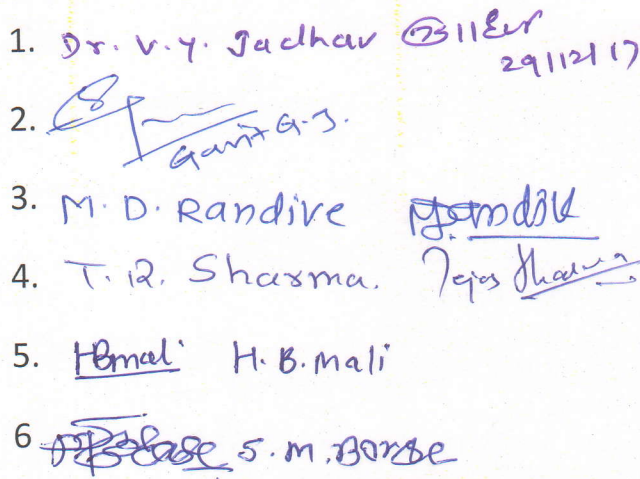 1. Dr. V. Y. Jadhav
29/12/17
2.
Gavit G. J.
3. M. D. Randive
4. T. R. Sharma. Tejas Sharma
5. HBmali H. B. Mali
6 S. M. Borse